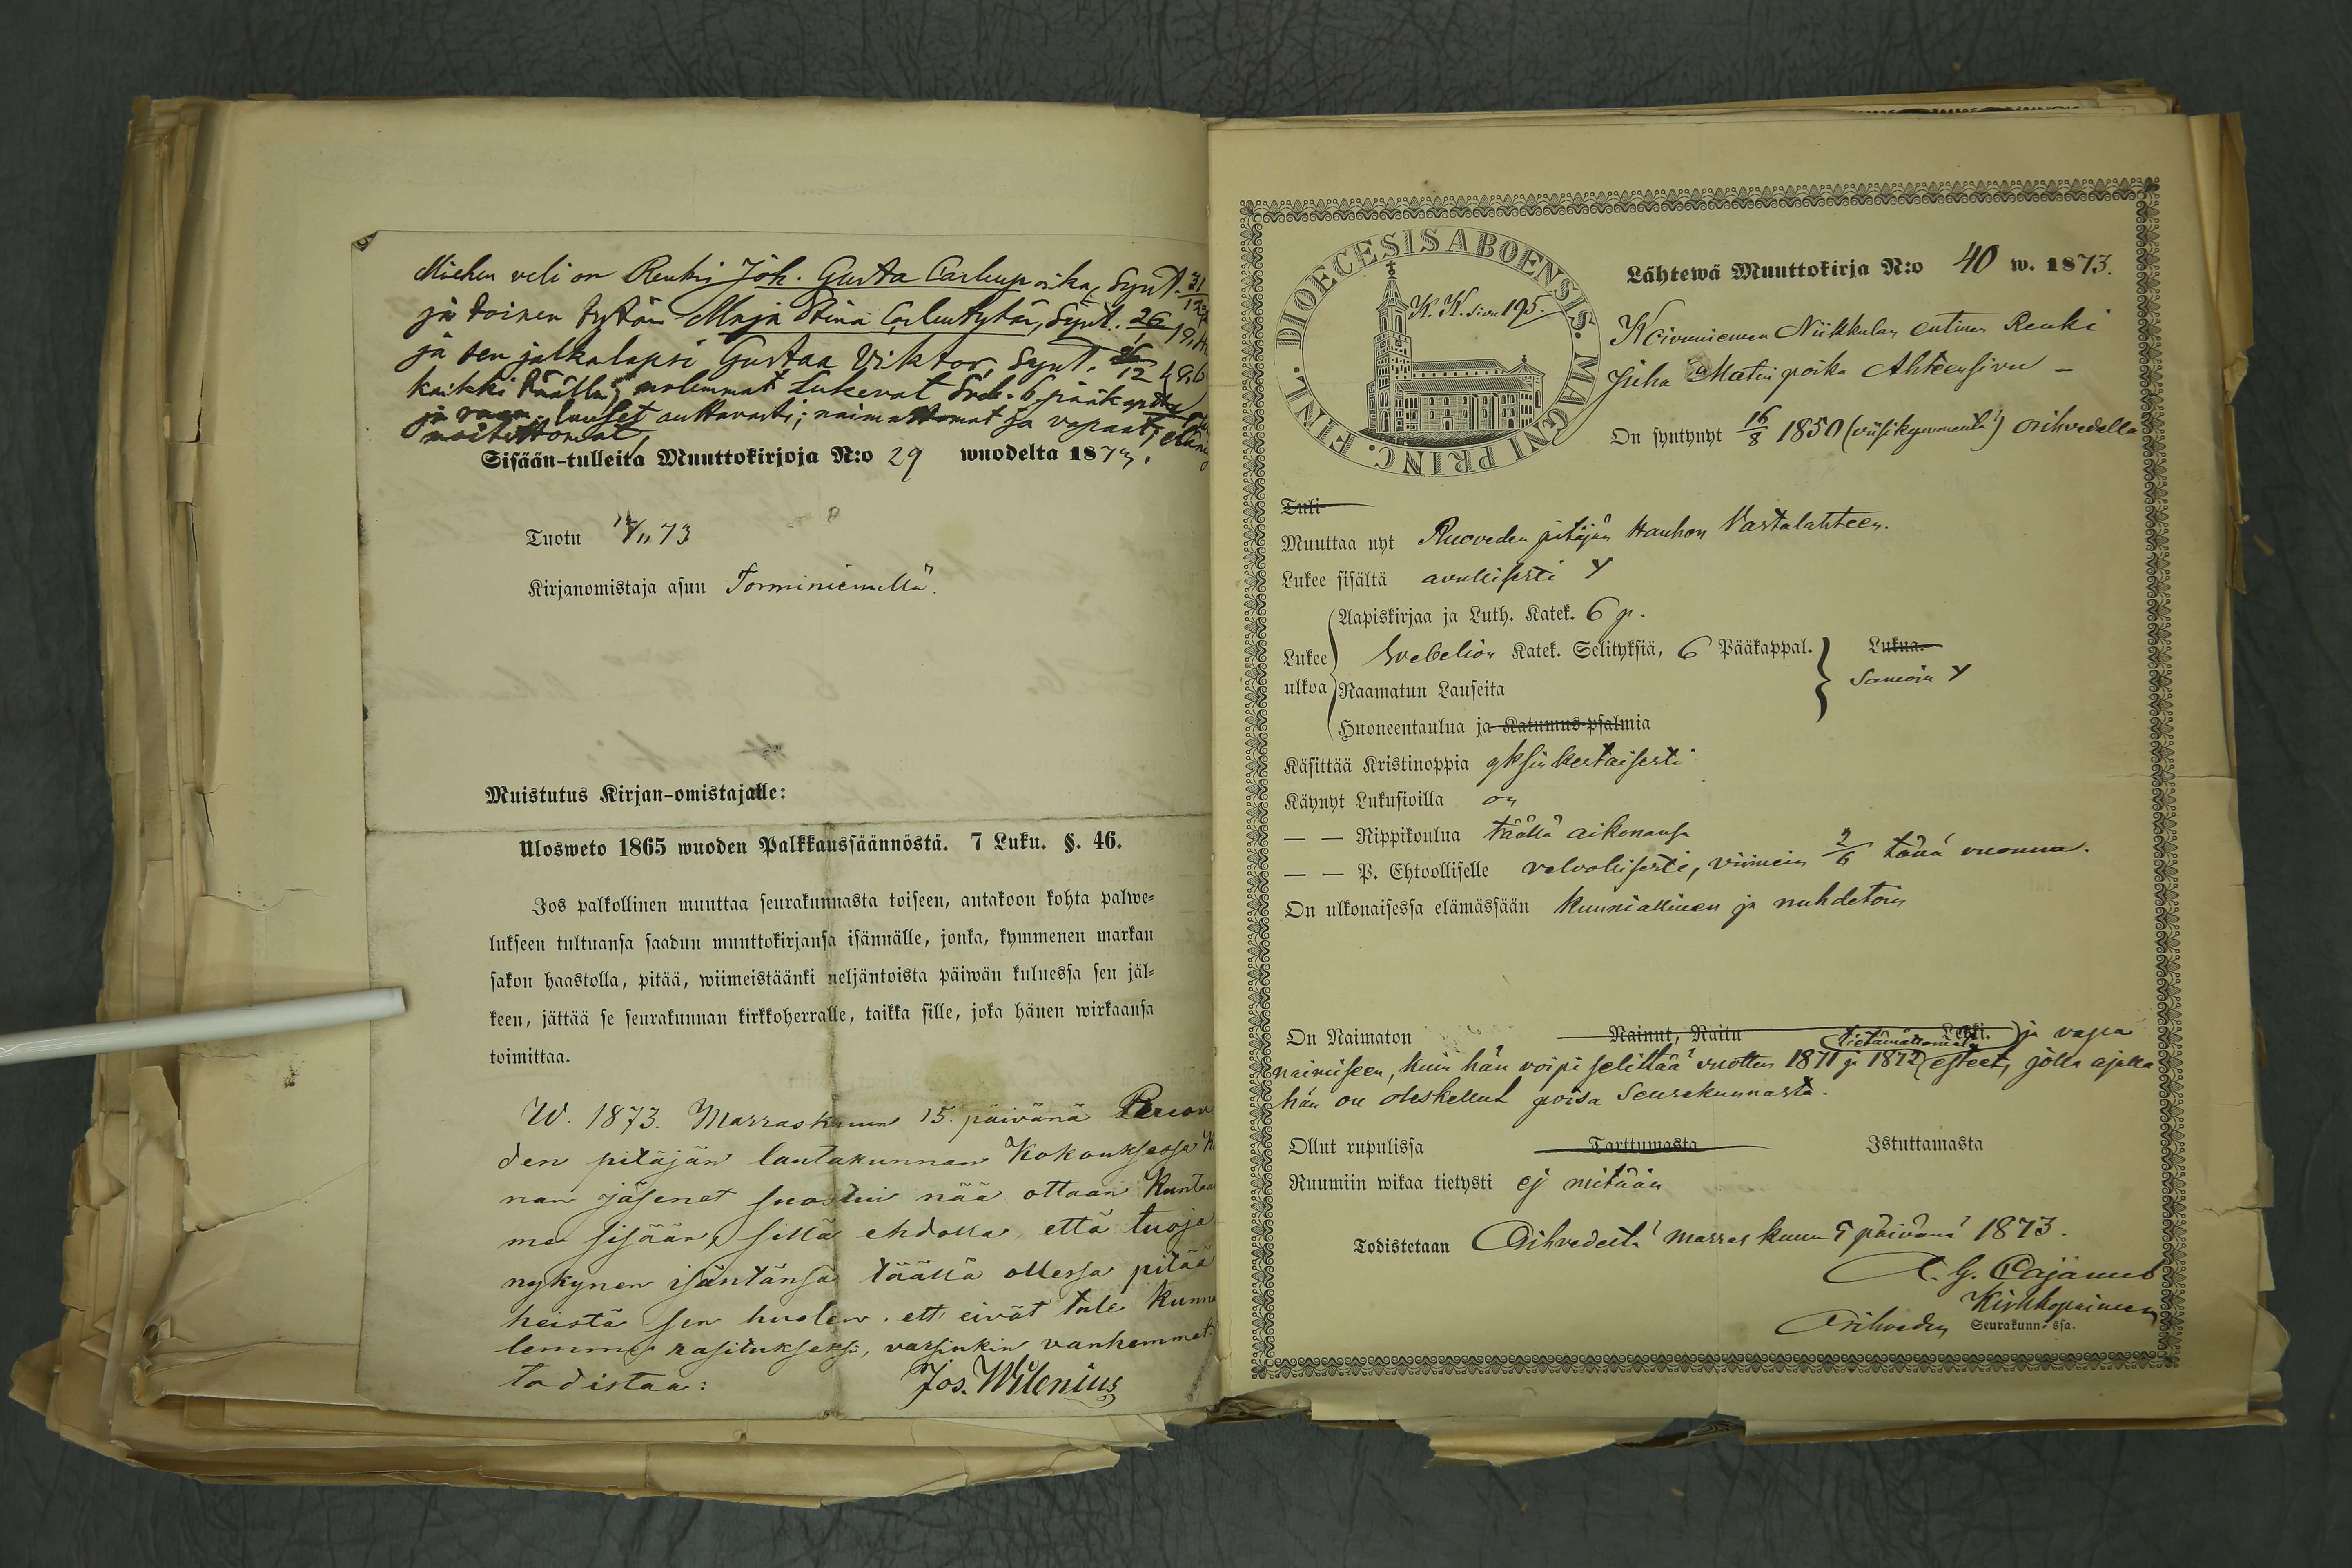 Miehen veli on Renki Joh. Gusta Carlenpoika, Synt. 31
ja toinen tytön Maja Stina Carlentytär, Synt. 26
ja sen jalkalapsi Gustaa Viktor, Synt. 12
kaikki täällä; molemmat lukevat Sveb. 6 pääkapp
ja lauset auttavasti; naimattomat ja vapaat;
moitittomat,
Sisään-tulleita Muuttokirjoja N:o 29 wuodelta 1873.
Tuotu /11 73
Kirjanomistaja asuu Torminiemellä.
Muistutus Kirjan-omistajalle:
Ulosweto 1865 wuoden Palkkaussäännöstä. 7 Luku. §. 46.
Jos palkollinen muuttaa seurakunnasta toiseen, antakoon kohta palwe-
lukseen tultuansa saadun muuttokirjansa isännälle, jonka, kymmenen markan
sakon haastolla, pitää, wiimeistäänki neljäntoista päiwän kuluessa sen jäl-
keen, jättää se seurakunnan kirkkoherralle, taikka sille, joka hänen wirkaansa
toimittaa.
W. 1873. Marraskuun 15. päivänä
den pitäjän lautakunnan Kokouksessa
nan jäsenet suostui nää ottaan Kuntaa
me sisään, sillä ehdolla, että tuoja
nykynen isäntänsä täällä ollessa pitää
heistä sen huolen, ett' eivät tule Kunna
lemme rasitukseksi, varsinkin vanhemmat.
todistaa: Jos. Wilenius
DIOECESIS ABOENSIS. MAGNI PRINC. FINL.
K. K. sivu 195.
Lähtewä Muuttokirja N:o 40 w. 1873.
Koivuniemen Niikkulan entinen Renki
Juha Matin poika Ahteensivu –
On syntynyt 16/8 1850 (viisikymmentä) Orihvedellä
Tuli
Muuttaa nyt Ruoveden pitäjän Hauhon Vastalahteen.
Lukee sisältä avullisesti Y
Aapiskirjaa ja Luth. Katek. 6 p.
Lukee ulkoa Svebelion Katek. Selityksiä, 6 Pääkappal. Lukua.
Raamatun Lauseita Samoin Y
Huoneentaulua ja Katumus-psalmia
Käsittää Kristinoppia yksinkertaisesti
Käynyt Lukusioilla on
— — Rippikoulua täällä aikonansa
— — P. Ehtoolliselle velvollisesti, viimein 2/6 tänä vuonna.
On ulkonaisessa elämässään kunniallinen ja nuhdetoin
On Naimaton Nainut, Naitu Leski. ja vapaa
(tietämättömät
naimiseen, kuin hän voipi selittää vuotten 1871 ja 1872 esteet, jolla ajalla
hän on oleskellut poisa Seurakunnasta.
Ollut rupulissa Tarttumasta Istuttamasta
Ruumiin wikaa tietysti ej mitään
Todistetaan Orihvedeltä marraskuun 5 päivänä 1873.
A. G. Cajanus
Kirkkopainen
Orihveden Seurakunnassa.